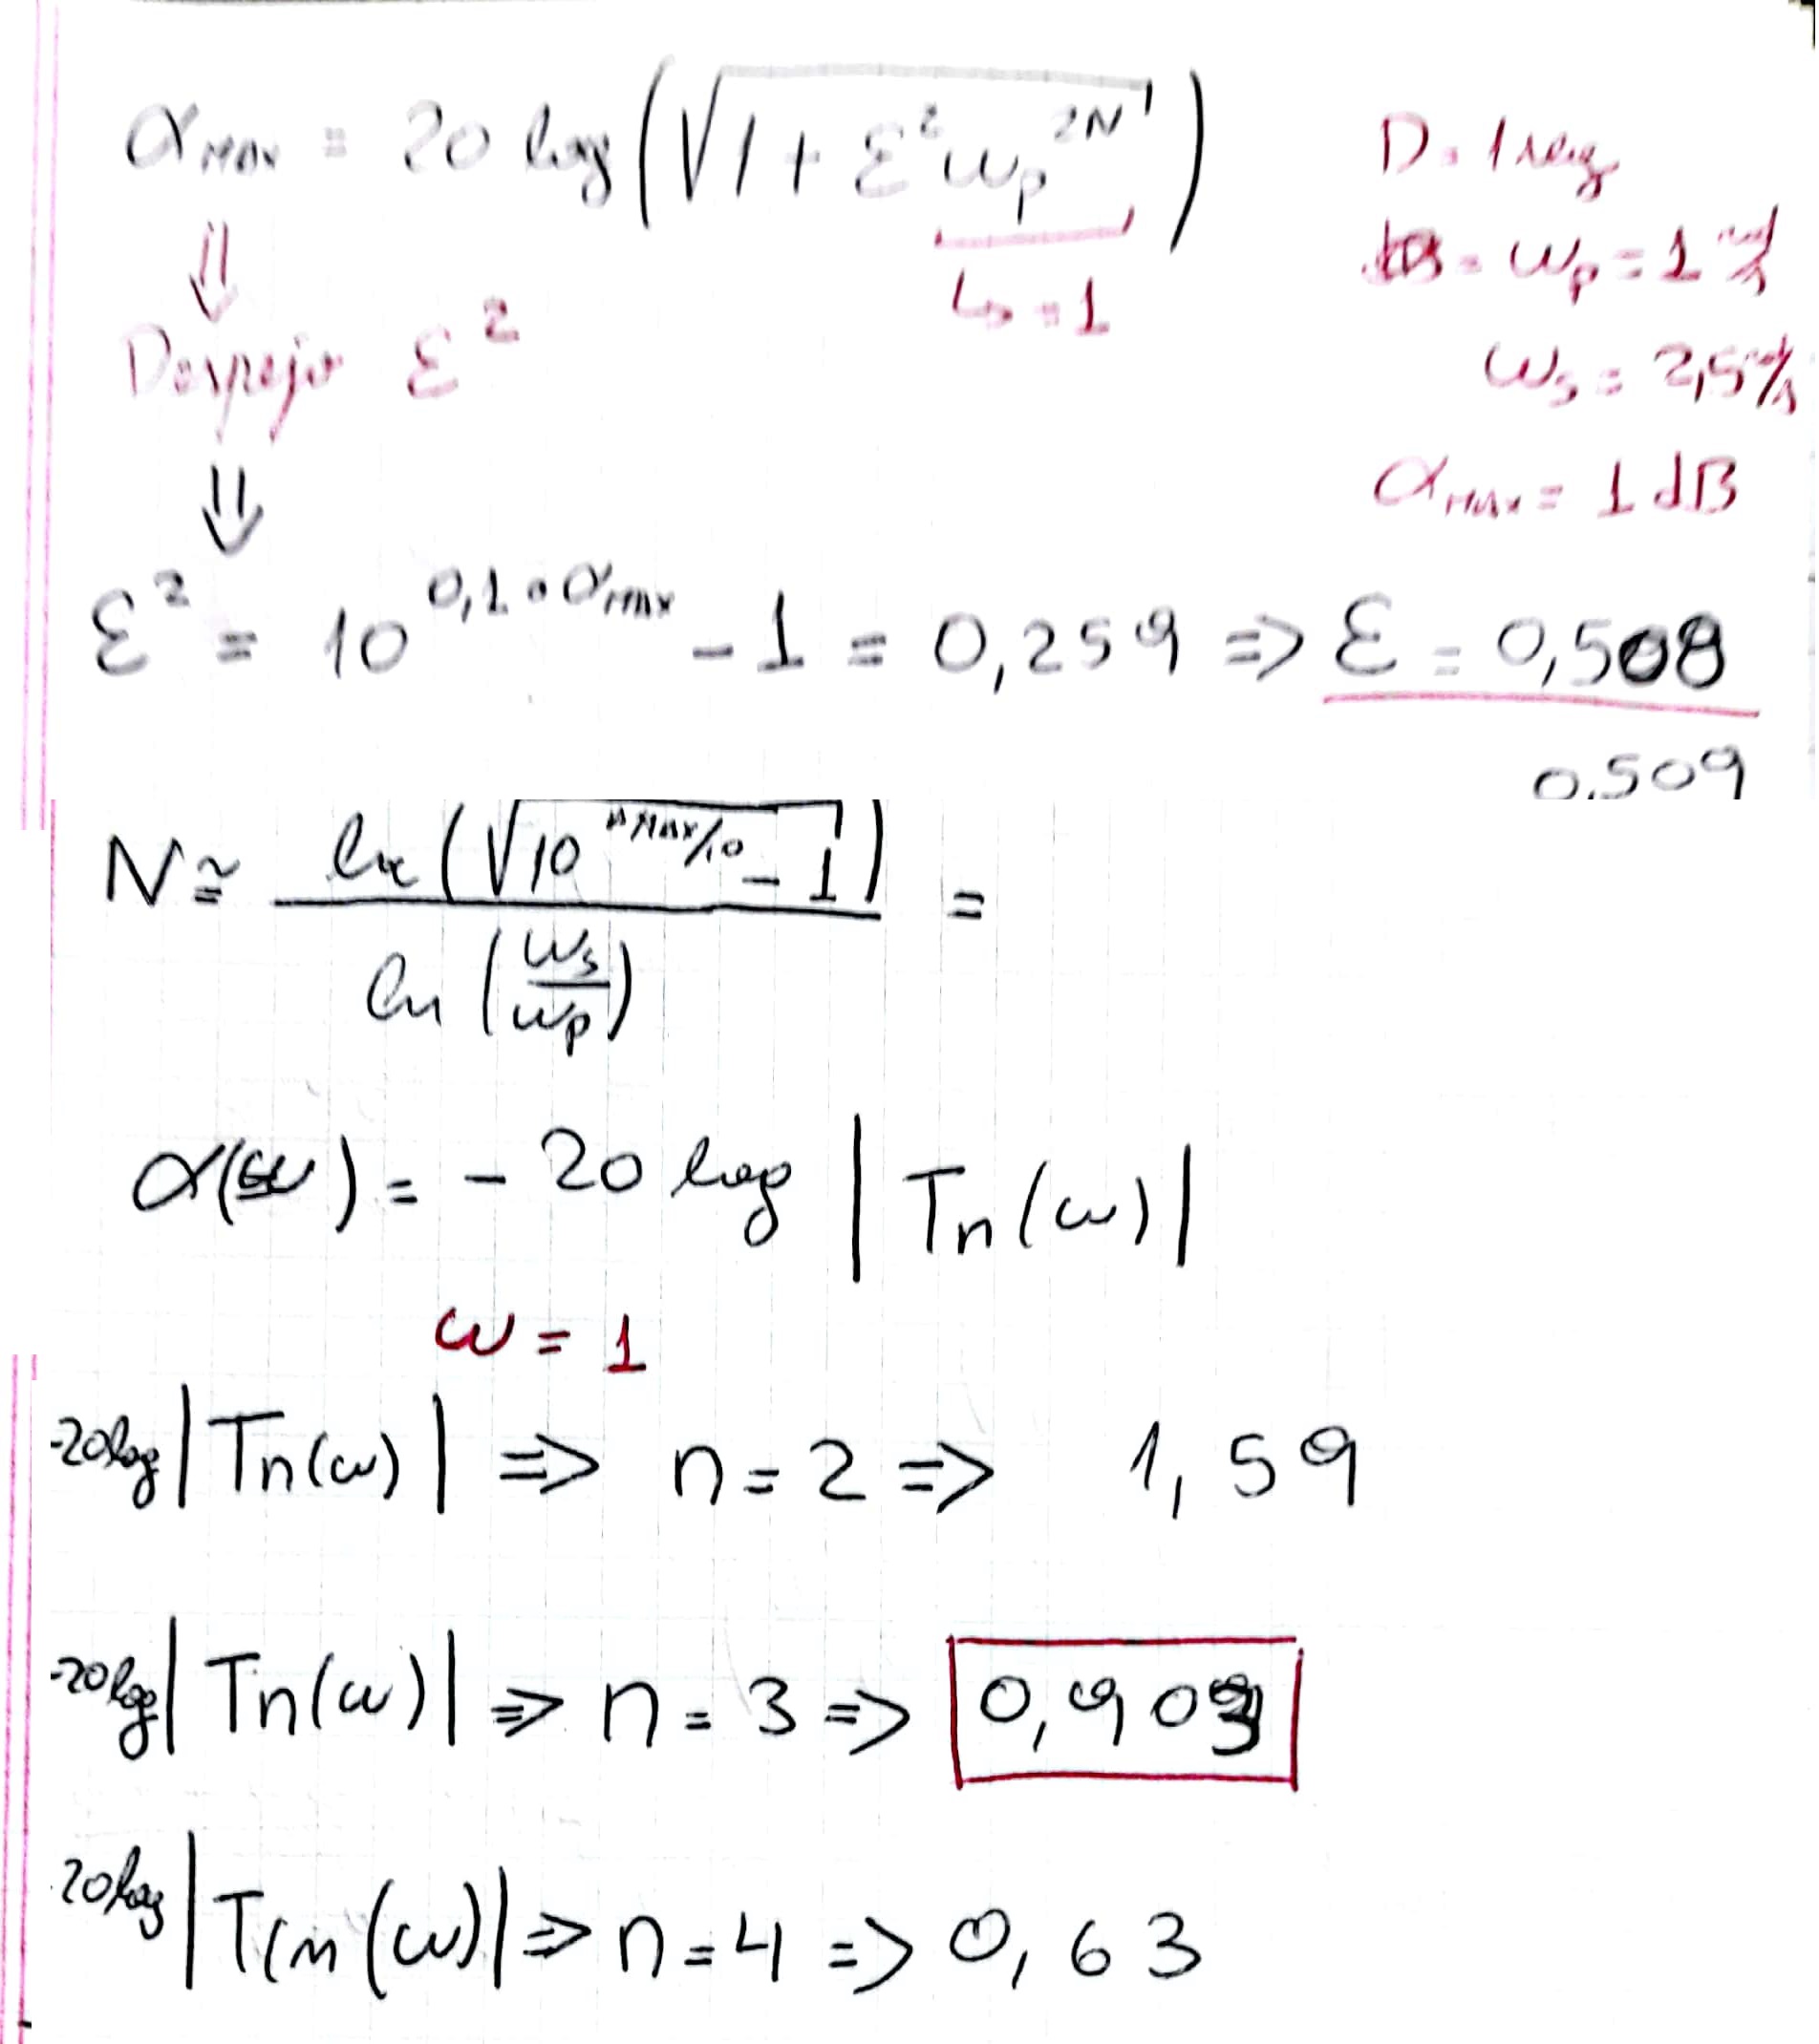 α_MAX = 20 log(√(1 + ε² ω_p^2N))
↳ = 1
D = 1 seg
ω_p = 1 rad/s
ω_s = 2,5 rad/s
α_MAX = 1 dB
⇓
Despejo ε²
⇓
ε² = 10^(0,1 • α_MAX) - 1 = 0,259 ⇒ ε = 0,508
0.509
N ≅ ln(√(10^(α_MAX/10) - 1)) / ln(ω_s/ω_p) =
α(ω) = - 20 log |Tn(ω)|
ω = 1
-20log |Tn(ω)| ⇒ n = 2 ⇒ 1,59
-20log |Tn(ω)| ⇒ n = 3 ⇒ 0,909
20log |Tn(ω)| ⇒ n = 4 ⇒ 0,63